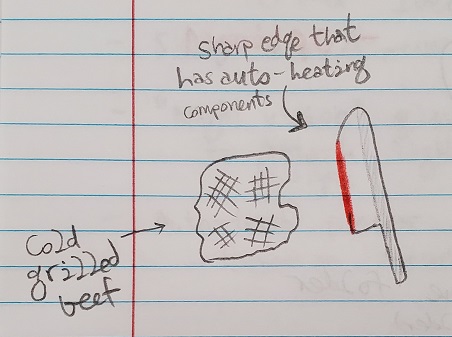 sharp edge that
has auto-heating
components
cold
grilled
beef